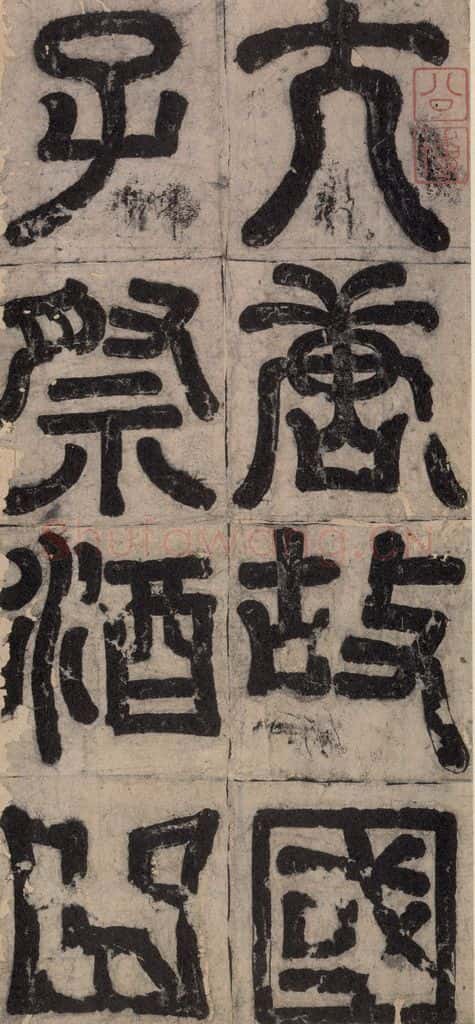 大唐故國
子祭酒曲
Shufawang.CN